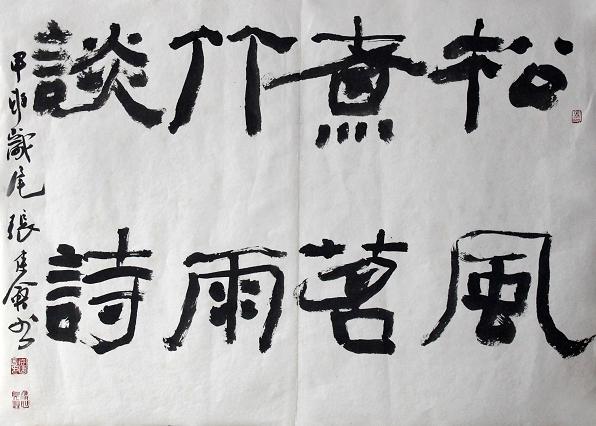 松風
煮茗
竹雨
談詩
甲申歲尾張书